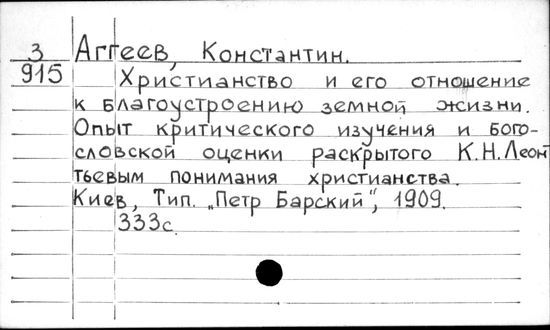 3 Аггеев, Константин.
915 Христианство и его отношение
к благоустроению земной жизни.
Опыт критического изучения и бого-
словской оценки раскрытого К.Н.Леонт
тьевым понимания христианства.
Киев, Тип. „Петр Барский", 1909.
333с.